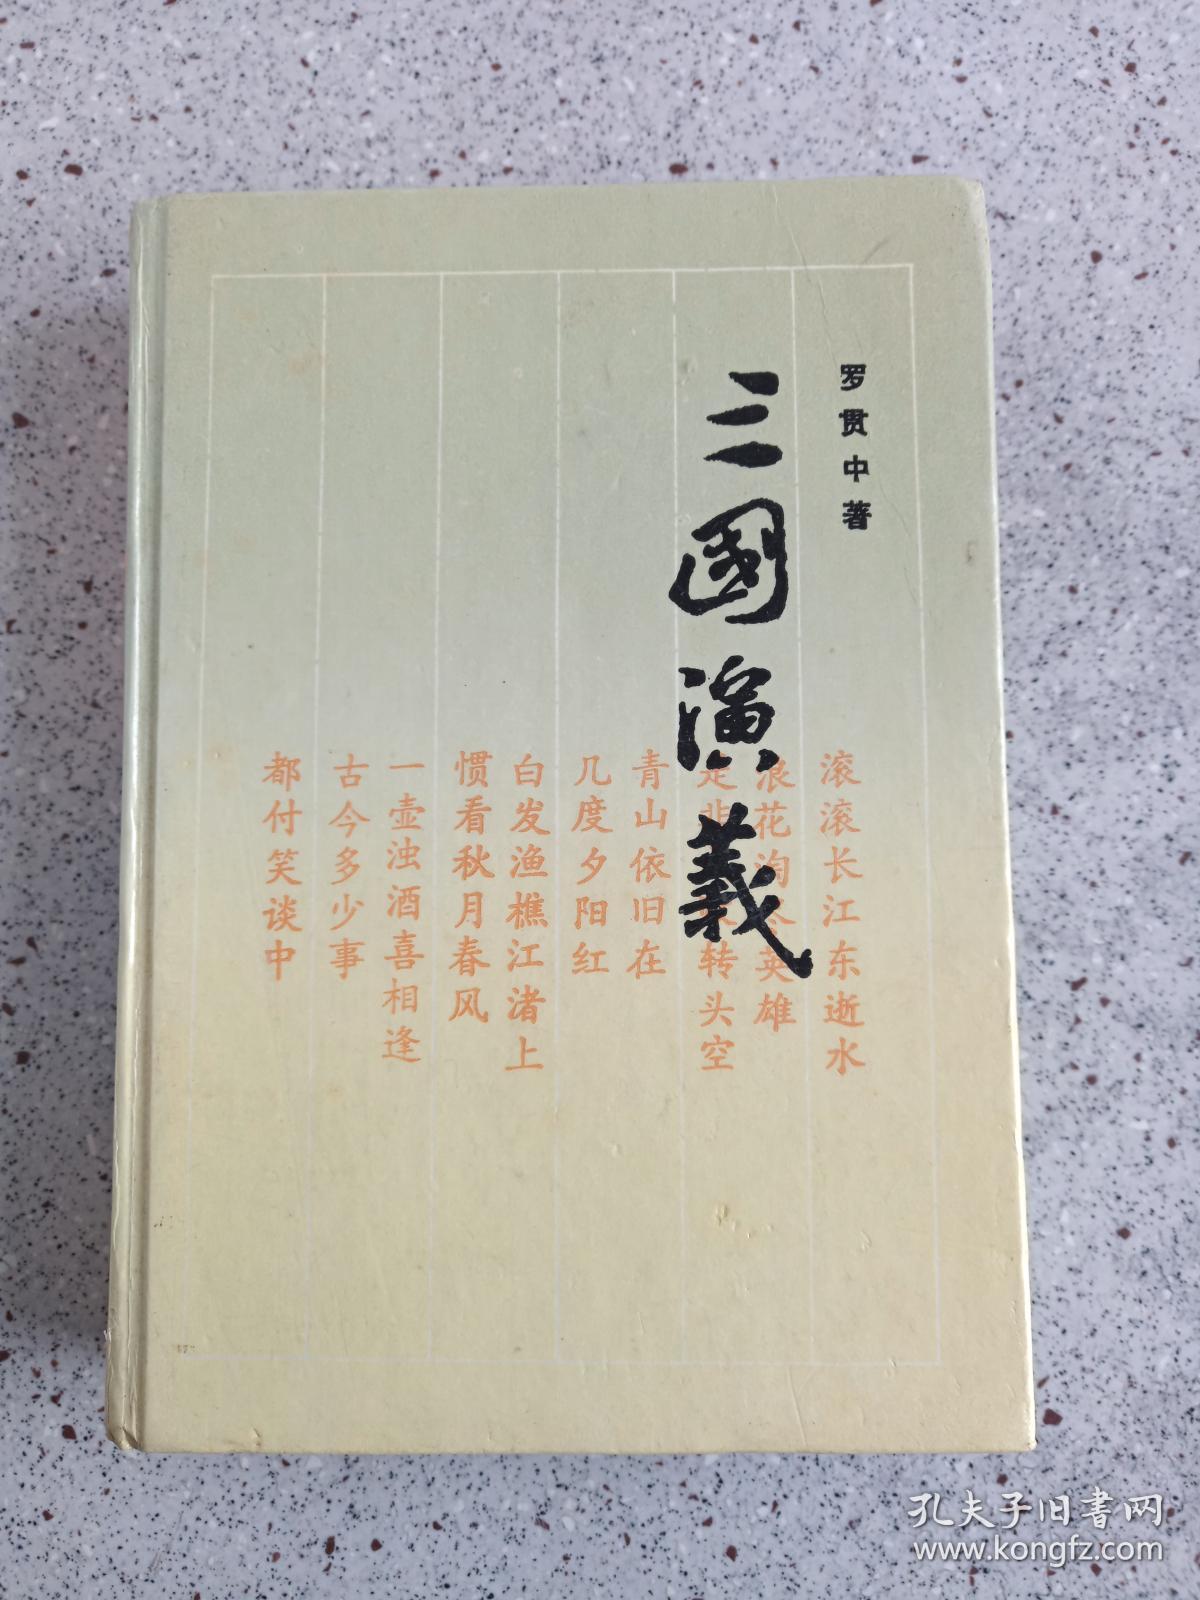 罗贯中著
三國演義
滚滚长江东逝水
浪花淘尽英雄
是非转头空
青山依旧在
几度夕阳红
白发渔樵江渚上
惯看秋月春风
一壶浊酒喜相逢
古今多少事
都付笑谈中
孔夫子旧書网
www.kongfz.com